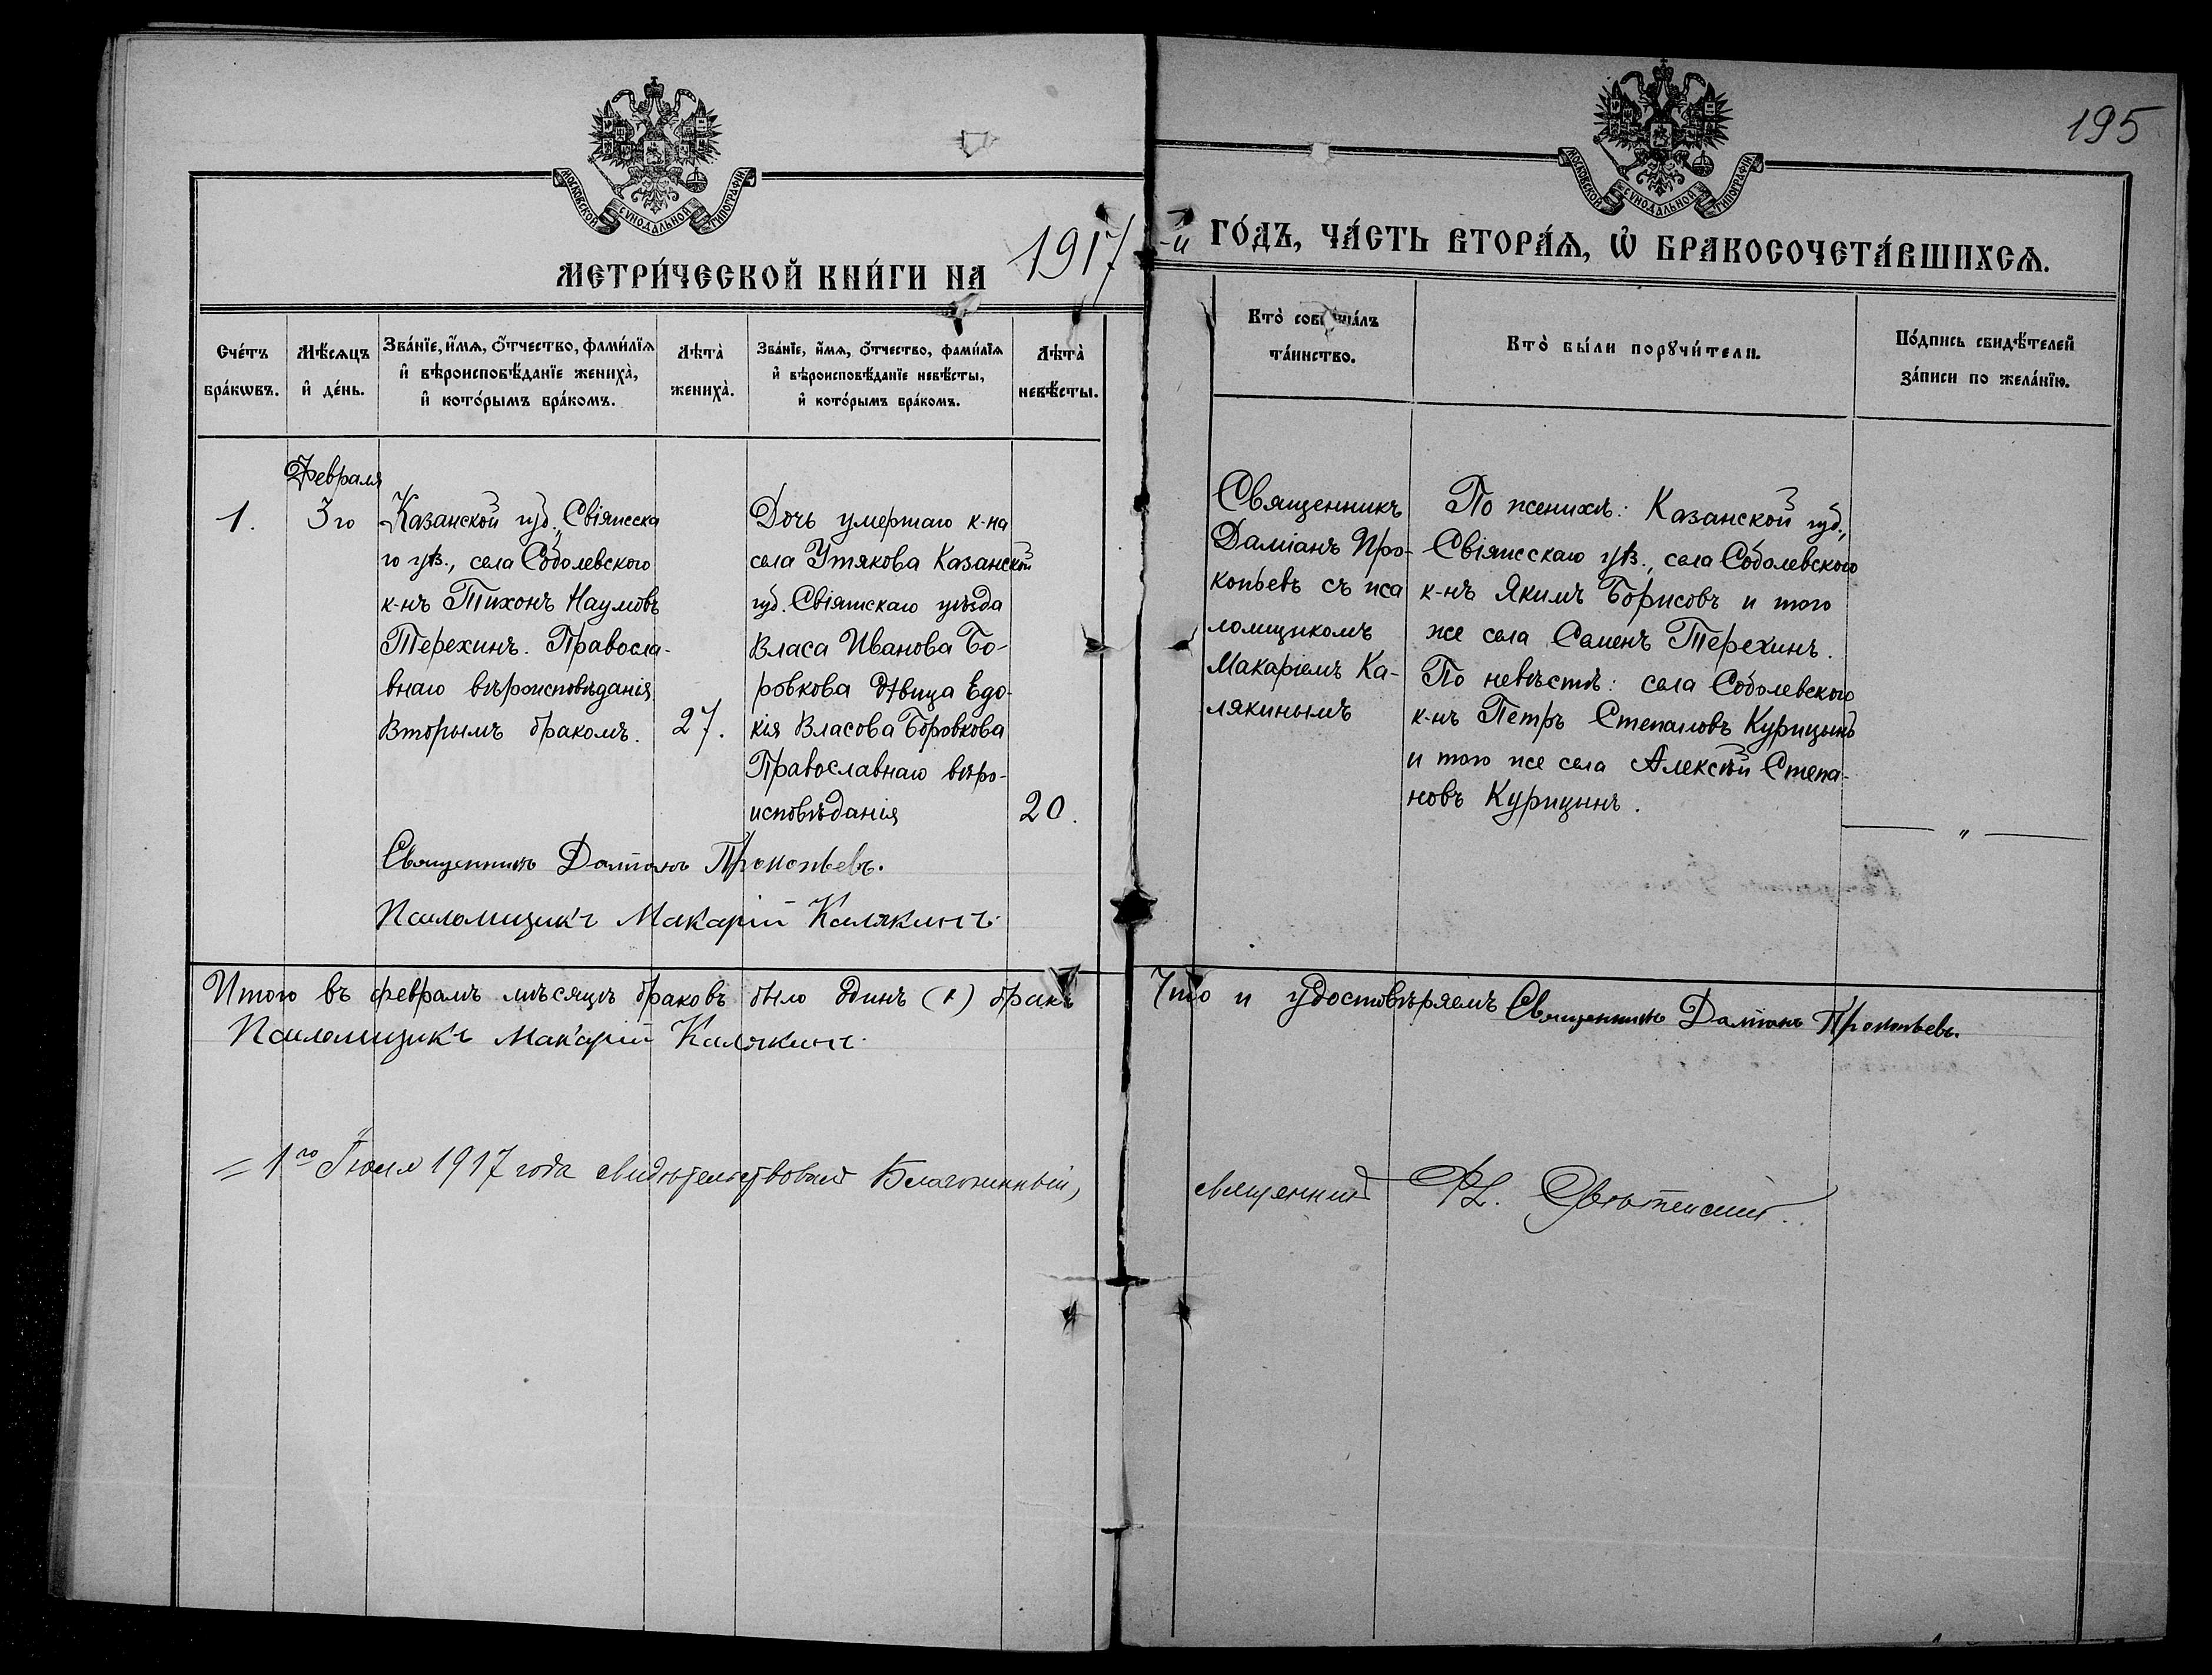 195
МОСКОВСКОЙ СѴНОДАЛЬНОЙ ТИПОГРАФІИ
МОСКОВСКОЙ СѴНОДАЛЬНОЙ ТИПОГРАФІИ
МЕТРИ́ЧЕСКОЙ КНИ́ГИ НА 1917-й ГО́ДЪ, ЧА́СТЬ ВТОРА́Ѧ, Ѽ БРАКОСОЧЕТА́ВШИХСѦ.
Сче́тъ
бра́кѡвъ.
Мѣ́сѧцъ
и҆ де́нь.
Зва́нїе, и҆́мѧ, ѻ҆́тчество, фами́лїѧ
и҆ вѣроисповѣ́данїе жениха̀,
и҆ кото́рымъ бра́комъ.
Лѣта̀
жениха̀.
Зва́нїе, и҆́мѧ, ѻ҆́тчество, фами́лїѧ
и҆ вѣроисповѣ́данїе невѣ́сты,
и҆ кото́рымъ бра́комъ.
Лѣта̀
невѣ́сты.
Кто̀ соверша́лъ
та́инство.
Кто̀ бы́ли порꙋчи́тели.
По́дпись свидѣ́телей
за́писи по жела́нїю.
1.
Февраля
3го
Казанской губ., Свіяжска
го уѣз., села Соболевского
к-нъ Тихонъ Наумовъ
Терехинъ. Правосла-
внаго вѣроисповѣданія,
Вторымъ бракомъ.
27.
Дочь умершаго к-на
села Утякова Казанской
губ. Свіяжскаго уѣзда
Власа Иванова Бо-
ровкова дѣвица Евдо-
кія Власова Боровкова
Православнаго вѣро-
исповѣданія
20.
Священникъ
Даміанъ Про-
копьевъ съ пса
ломщикомъ
Макаріемъ Ка-
лякинымъ
По женихѣ: Казанской губ.,
Свіяжскаго уѣз., села Соболевского
к-нъ Якимъ Борисовъ и того
же села Семенъ Терехинъ.
По невѣстѣ: села Соболевского
к-нъ Петръ Степановъ Курицынъ
и того же села Алексѣй Степа-
новъ Курицынъ.
— " —
Священникъ Даміанъ Прокопьевъ.
Псаломщикъ Макарій Калякинъ.
Итого въ февралѣ мѣсяцѣ браковъ было одинъ (1) бракъ Что и удостовѣряемъ Священникъ Даміанъ Прокопьевъ.
Псаломщикъ Макарій Калякинъ.
= 1го Іюля 1917 года свидѣтельствовалъ Благочинный, священникъ